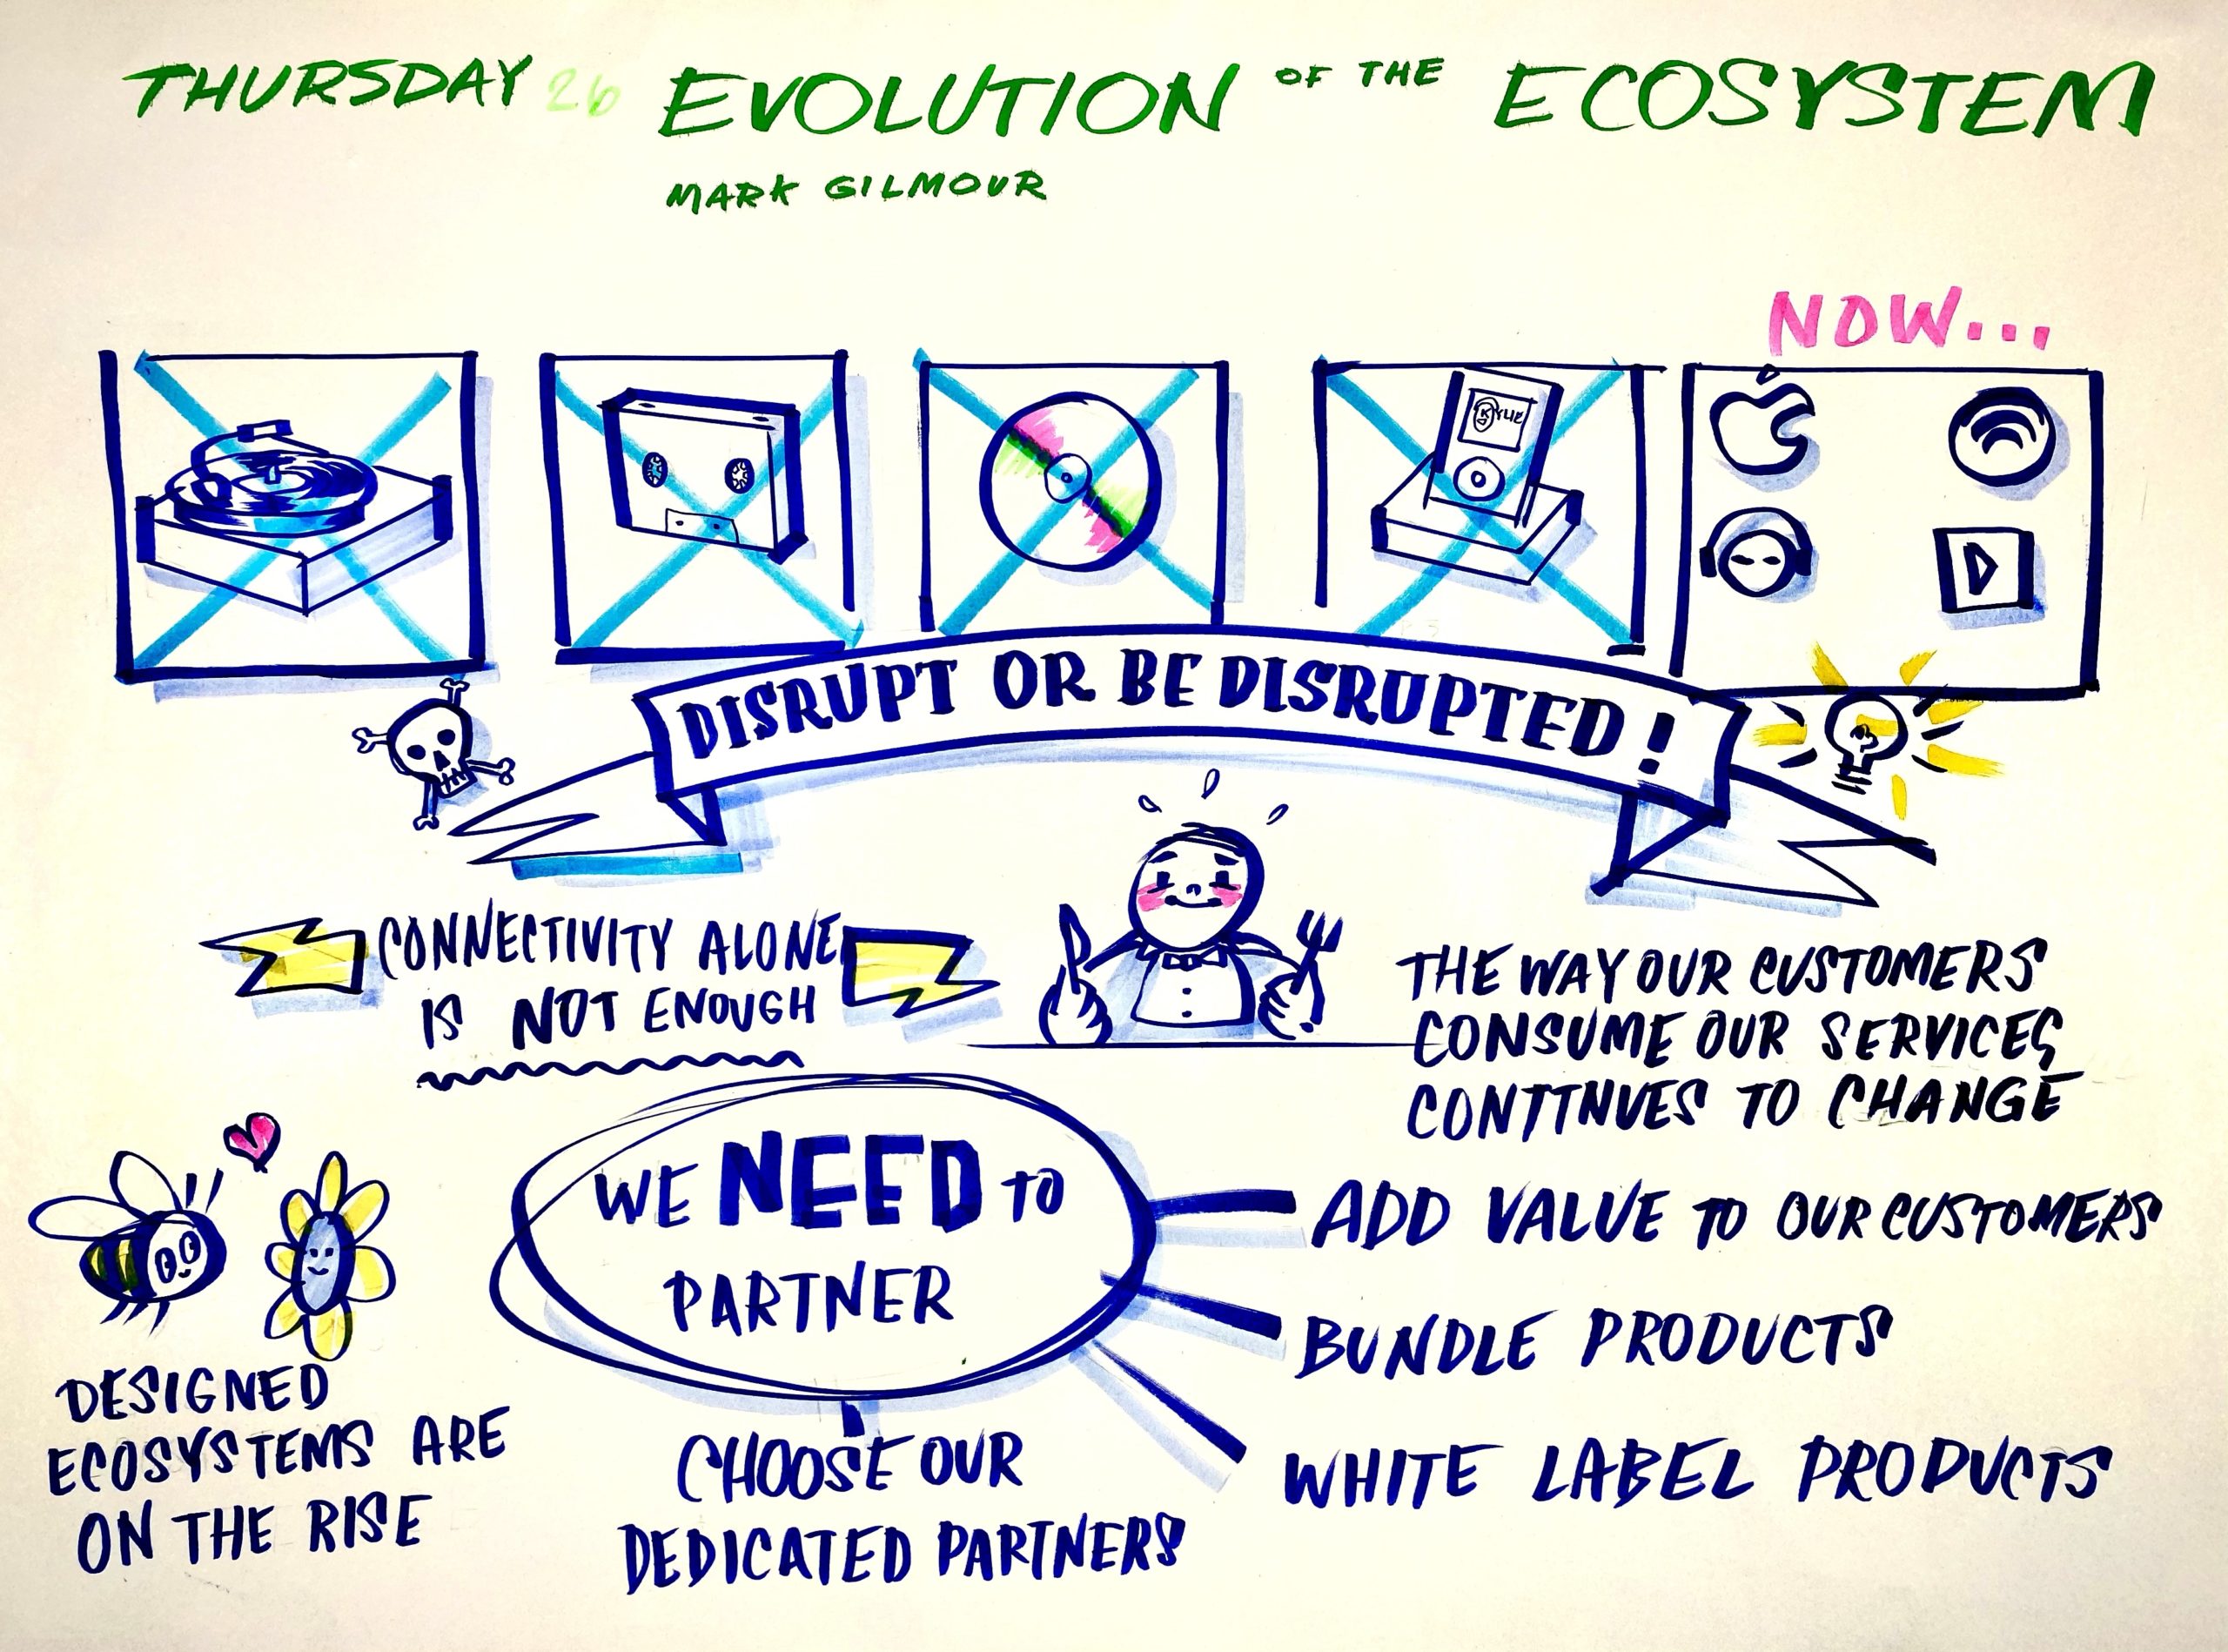 THURSDAY 26 EVOLUTION OF THE ECOSYSTEM
MARK GILMOUR
NOW...
KYLIE
DISRUPT OR BE DISRUPTED!
CONNECTIVITY ALONE
IS NOT ENOUGH
THE WAY OUR CUSTOMERS
CONSUME OUR SERVICES
CONTINUES TO CHANGE
WE NEED TO
PARTNER
ADD VALUE TO OUR CUSTOMERS
BUNDLE PRODUCTS
WHITE LABEL PRODUCTS
DESIGNED
ECOSYSTEMS ARE
ON THE RISE
CHOOSE OUR
DEDICATED PARTNERS